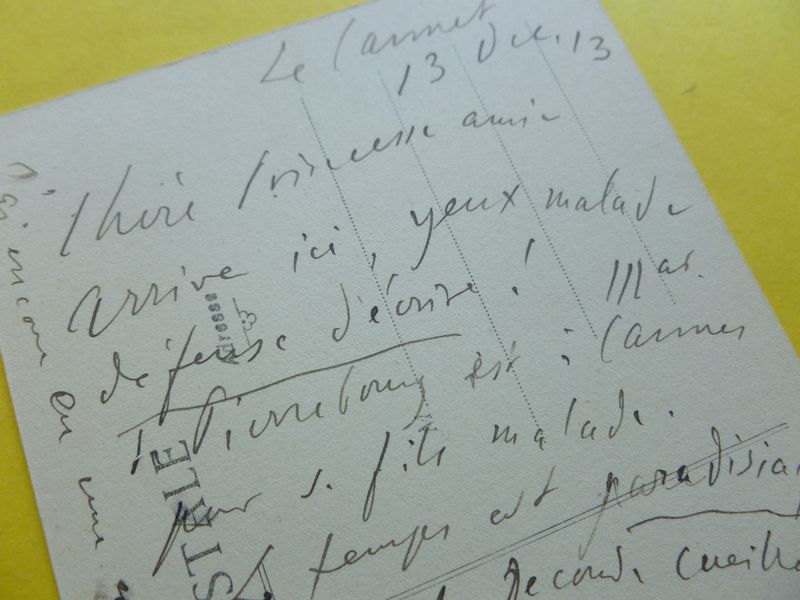 Le Cannet
13 Dec. 13
Chère Princesse amie
arrivé ici, yeux malade
défense d'écrire ! Mas.
Pierrebourg est à Cannes
pour s. fils malade.
temps est paradisia
seconde cueill
J'ai encore eu une
Adresse
STALE